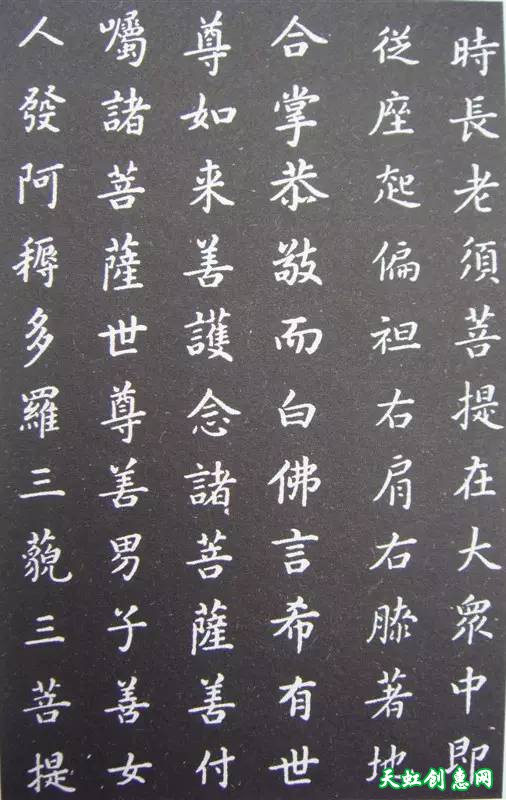 時長老須菩提在大眾中即
從座起偏袒右肩右膝著地
合掌恭敬而白佛言希有世
尊如来善護念諸菩薩善付
囑諸菩薩世尊善男子善女
人發阿耨多羅三藐三菩提
天虹创惠网